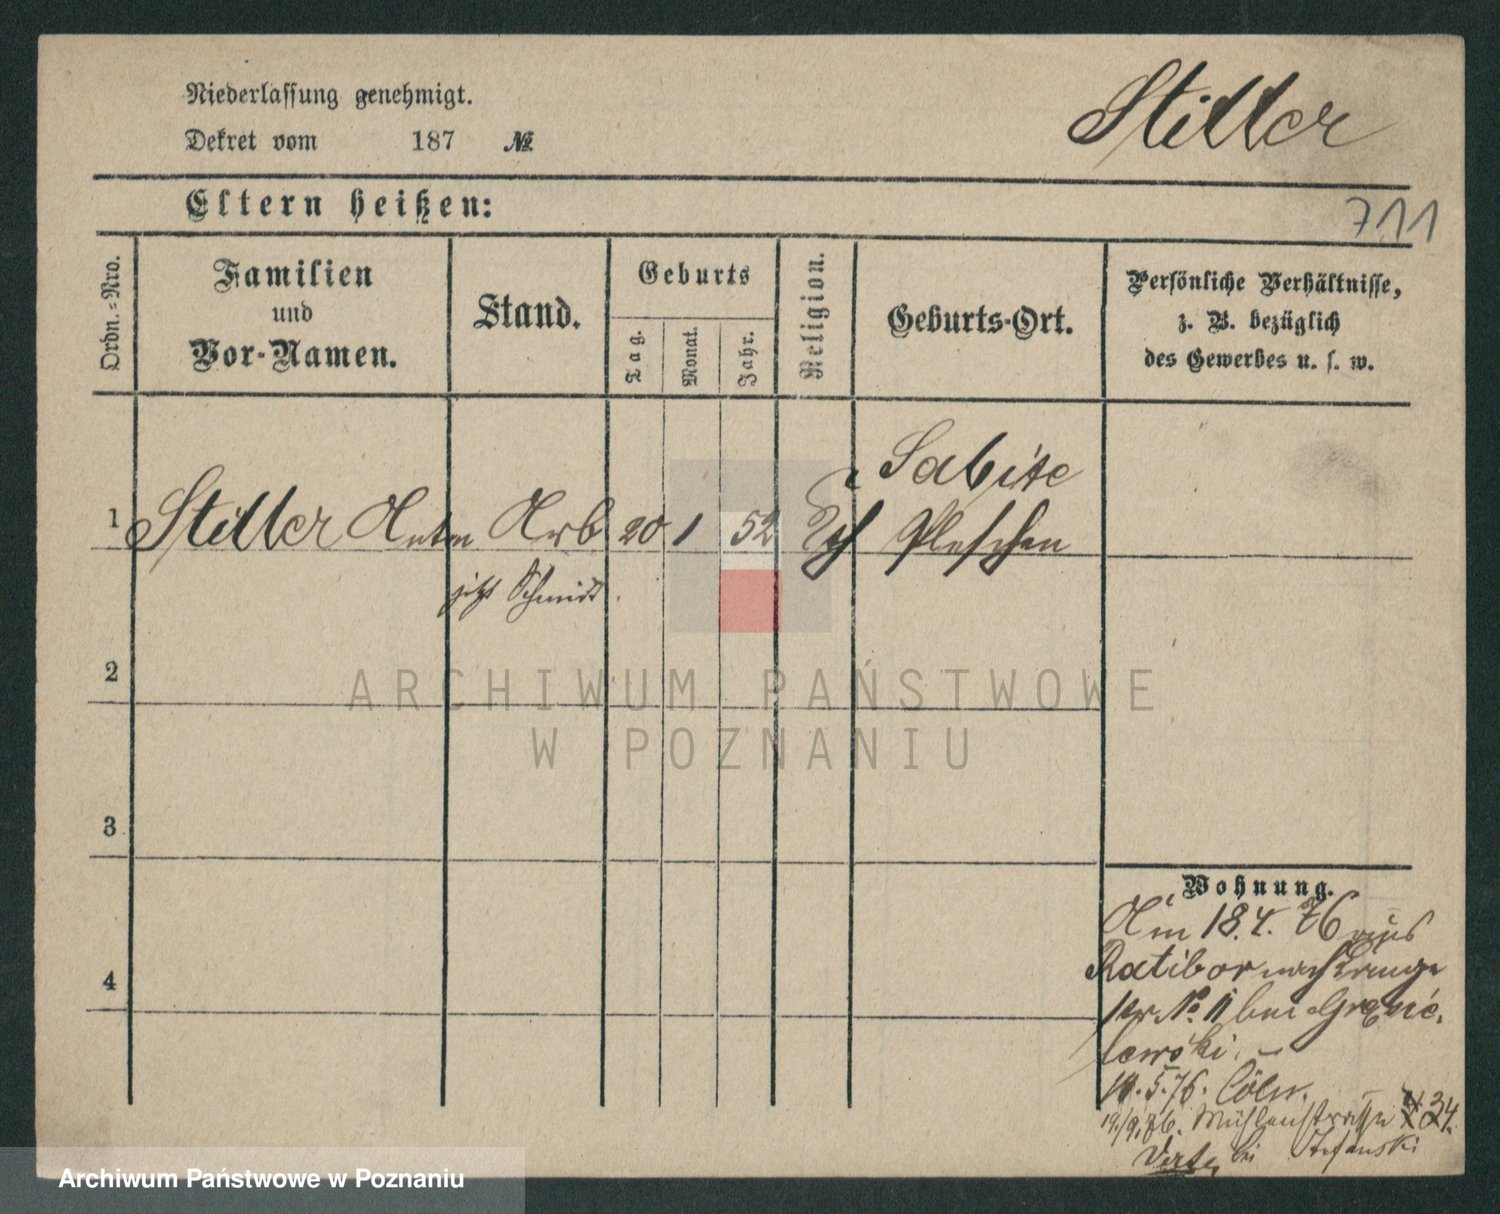 Niederlassung genehmigt.
Dekret vom 187 №
Stiller
Eltern heißen:
711
Ordn.-Nro.
Familien
und
Vor-Namen.
Stand.
Geburts
Tag.
Monat.
Jahr.
Religion.
Geburts-Ort.
Persönliche Verhältnisse,
z. B. bezüglich
des Gewerbes u. s. w.
Sabite
1 Stiller Anton Arb 20 1 52 Pleschen
jetzt Schmidt.
2
3
4
Wohnung.
Am 18.4.76 aus
Ratibor nach Lange
str. No 11 bei
lewski.
10.5.76. Cöln.
19./9.86. Mühlenstrasse 34.
bei Stefanski
Verte
ARCHIWUM PAŃSTWOWE
W POZNANIU
Archiwum Państwowe w Poznaniu